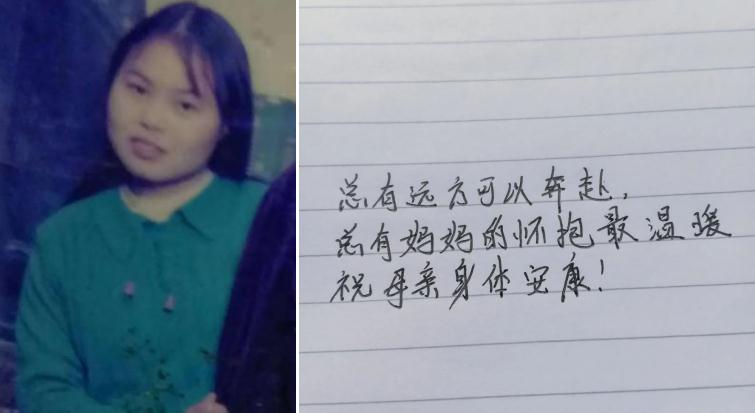 总有远方可以奔赴，
总有妈妈的怀抱最温暖
祝母亲身体安康！